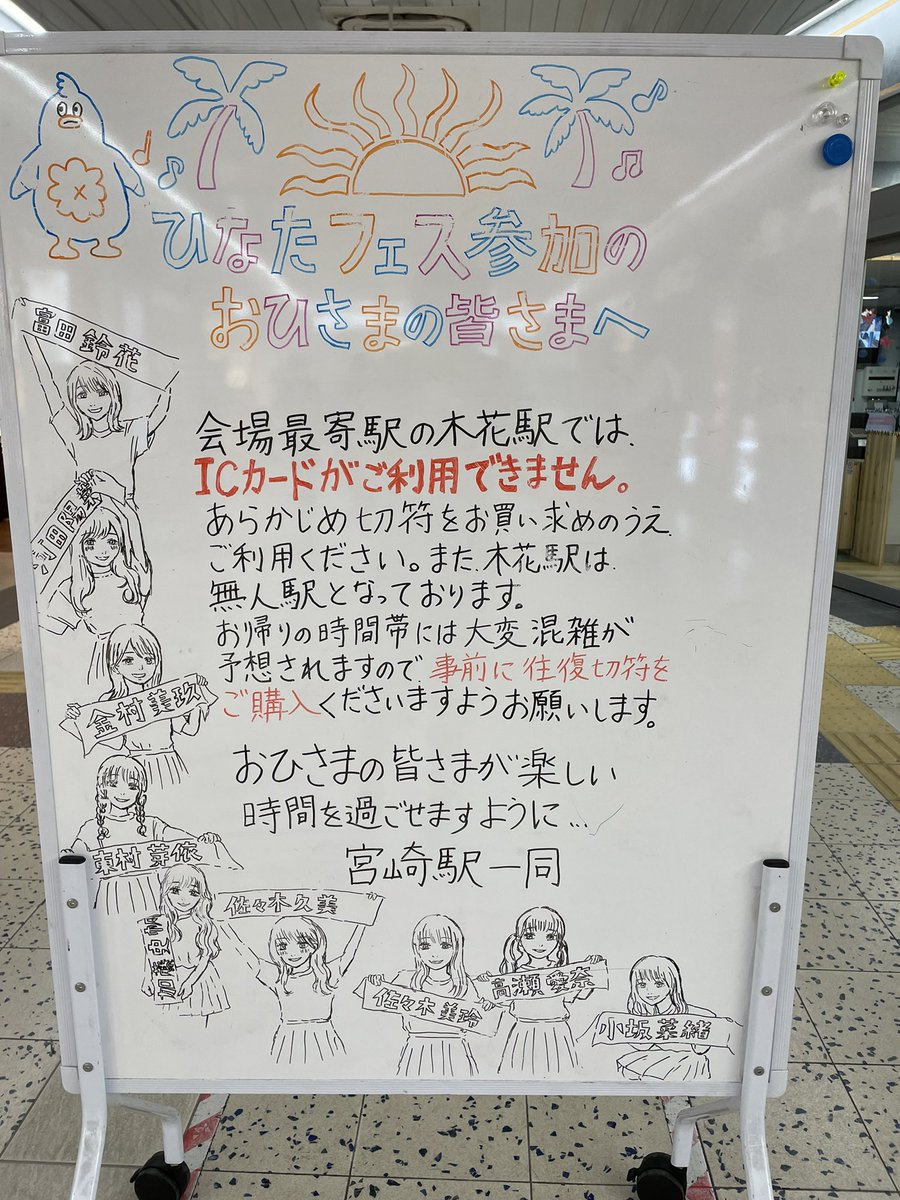 ひなたフェス参加の
おひさまの皆さまへ
富田鈴花
会場最寄駅の木花駅では、
ICカードがご利用できません。
あらかじめ切符をお買い求めのうえ、
ご利用ください。また、木花駅は、
無人駅となっております。
お帰りの時間帯には大変混雑が
予想されますので、事前に往復切符を
ご購入くださいますようお願いします。
金村美玖
おひさまの皆さまが楽しい
時間を過ごせますように…
宮崎駅一同
東村芽依
加藤史帆
佐々木久美
佐々木美玲
高瀬愛奈
小坂菜緒